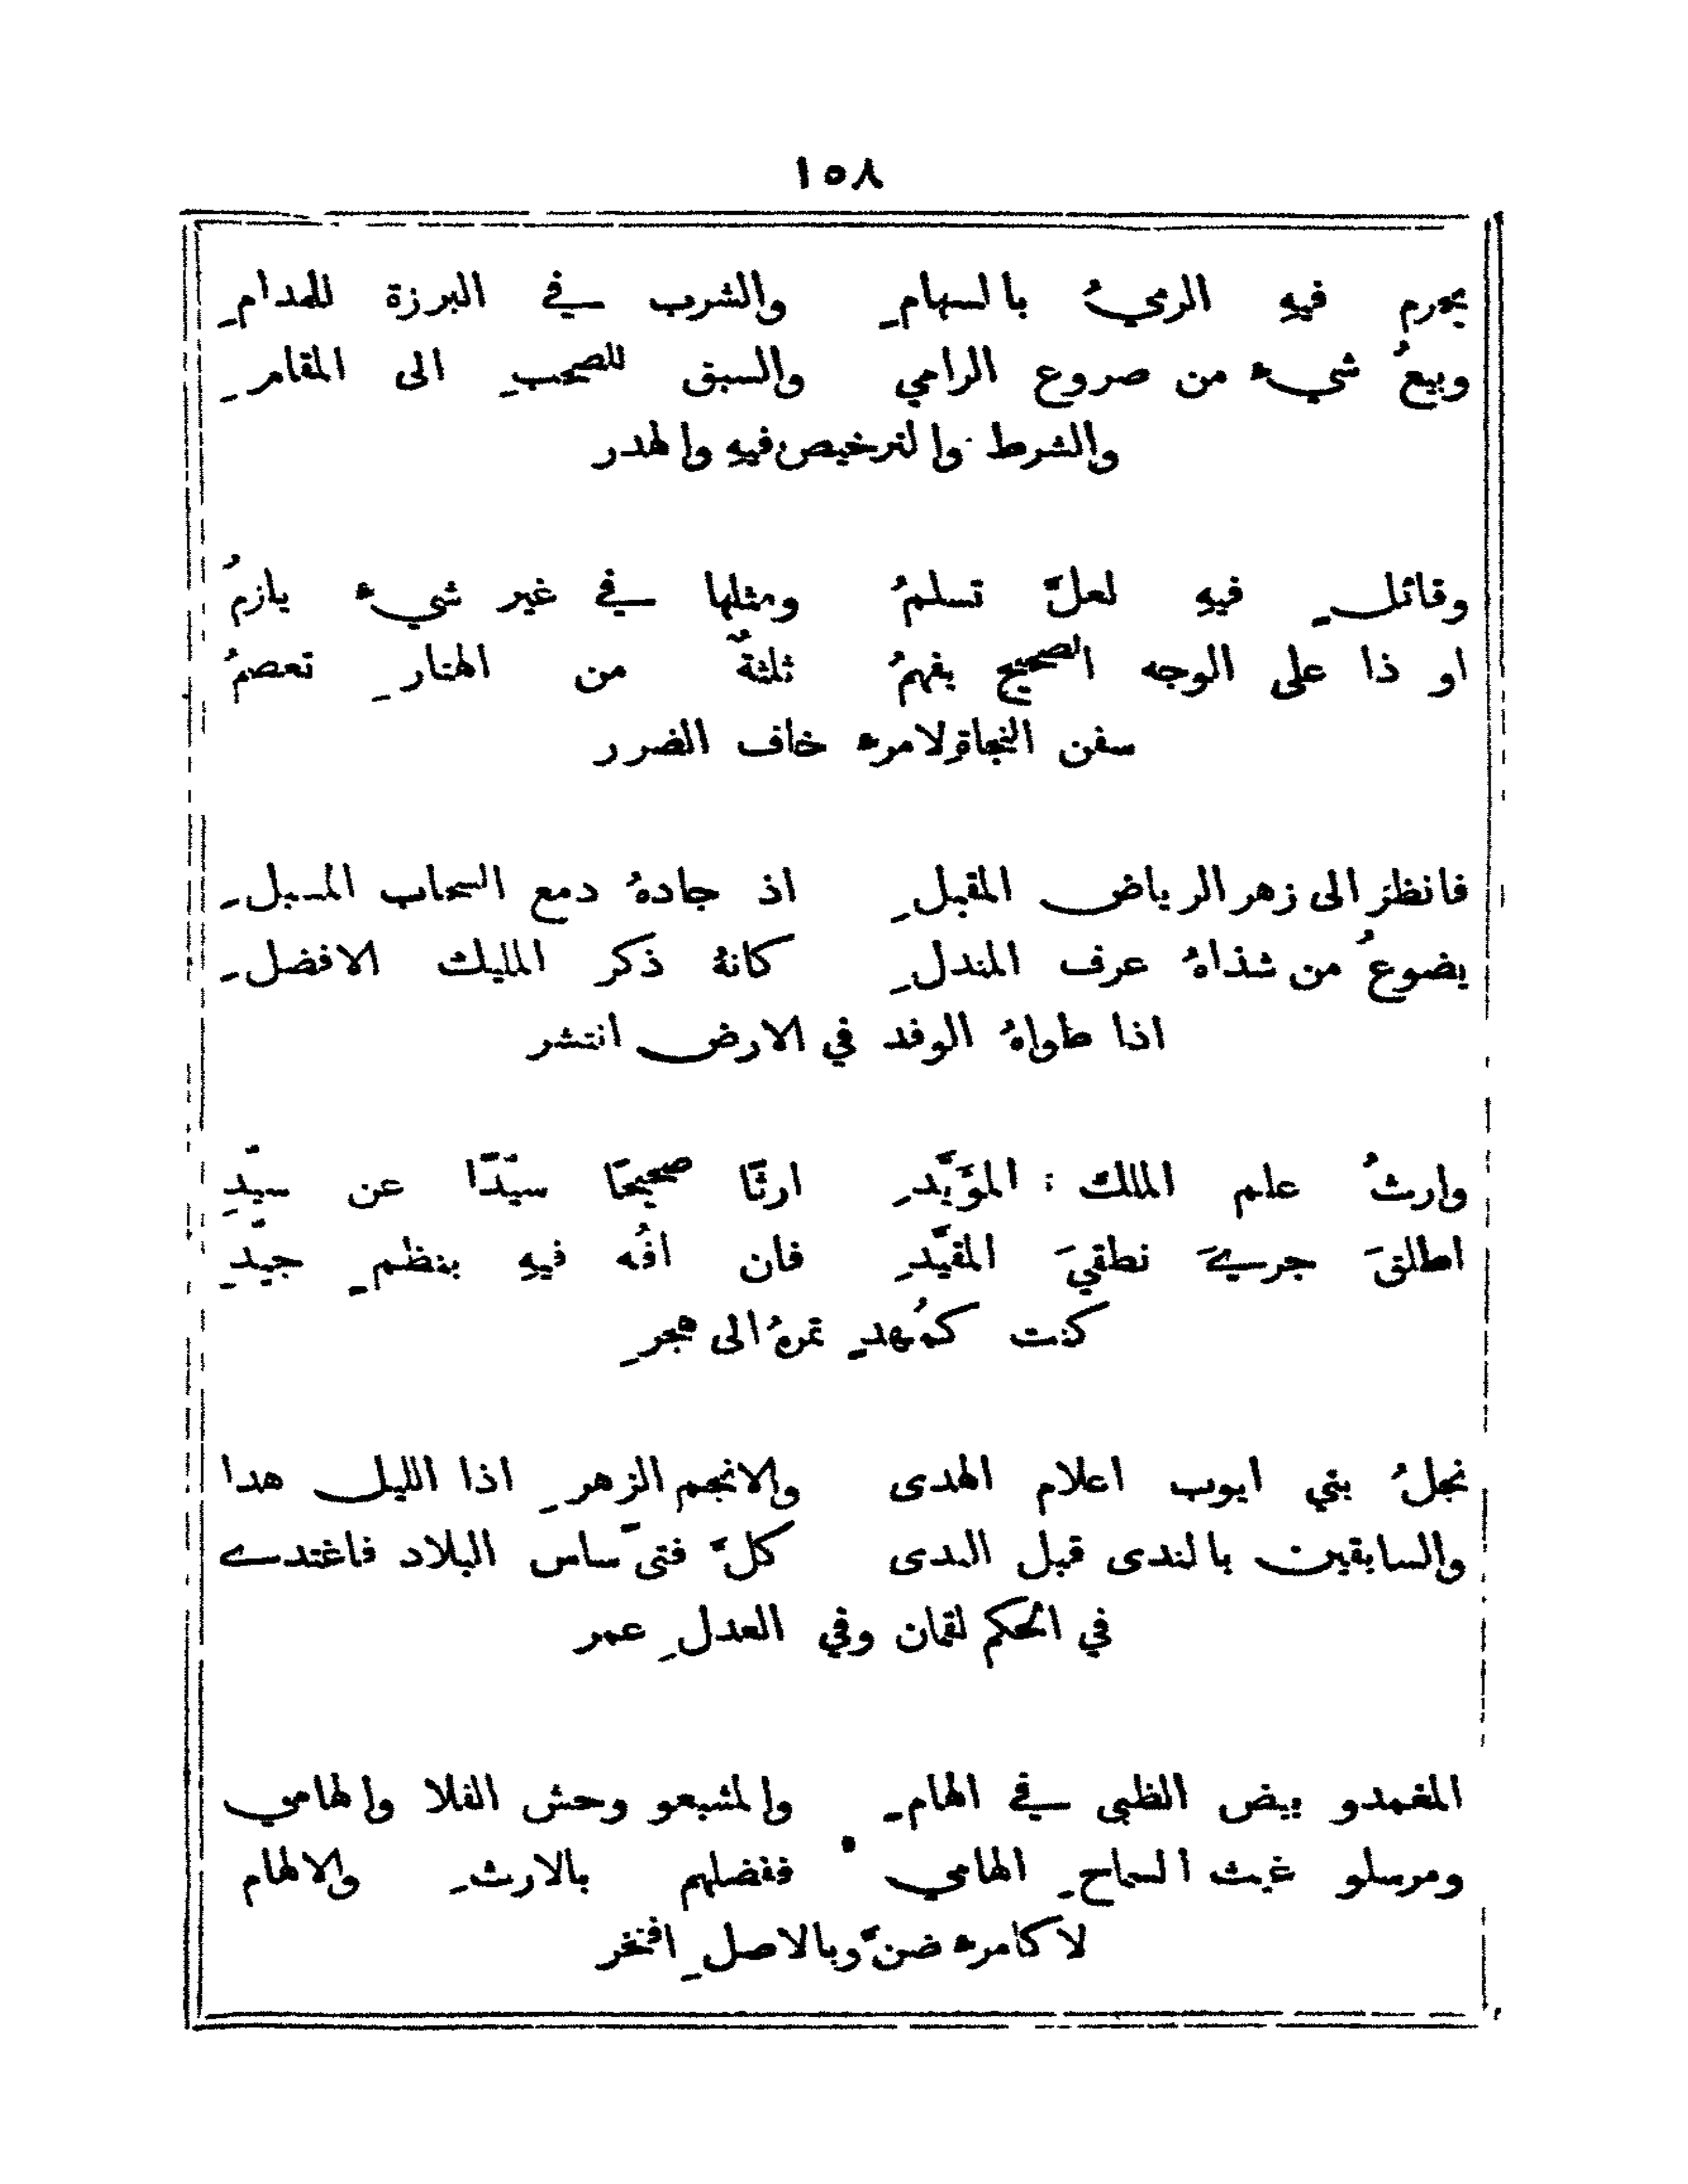 ١٥٨
يحرم فيهِ الرميُ بالسهامِ والشرب في البرزة للمدامِ
وبيعُ شيء من صروع الرامي والسبق للصحبِ الى المقامِ
والشرط والترخيص فيهِ والهدر
وقائلِ فيهِ لعلّ تسلمُ ومثلها في غير شيء يلزمُ
او ذا على الوجه الصحيح يفهمُ ثلثةٌ من الهتارِ تعصمُ
سفن النجاةِ لامرء خاف الضرر
فانظر الى زهر الرياض المقبلِ اذ جادهُ دمع السحاب المسبلِ
يضوعُ من شذاهُ عرف المندلِ كانهُ ذكر المليك الافضلِ
اذا طواهُ الوفد في الارض انتشر
وارثُ علم الملك : المؤيَّدِ ارثًا صحيحًا سيّدًا عن سيّدِ
اطلقَ جريَ نطقيَ المقيَّدِ فان افُه فيهِ بنظمِ جيّدِ
كنت كمُهدِ تمرهُ الى هجرِ
نجلُ بني ايوب اعلام الهدى والانجم الزهرِ اذا الليل هدا
والسابقين بالندى قبل الندى كلّ فتى ساس البلاد فاغتدى
في الحكم لقمان وفي العدلِ عمر
المغمدو بيض الظبى في الهامِ والمشبعو وحش الفلا والهامي
ومرسلو غيث السماحِ الهامي ففضلهم بالارثِ والالهام
لا كامرء ضنّ وبالاصلِ افتخر